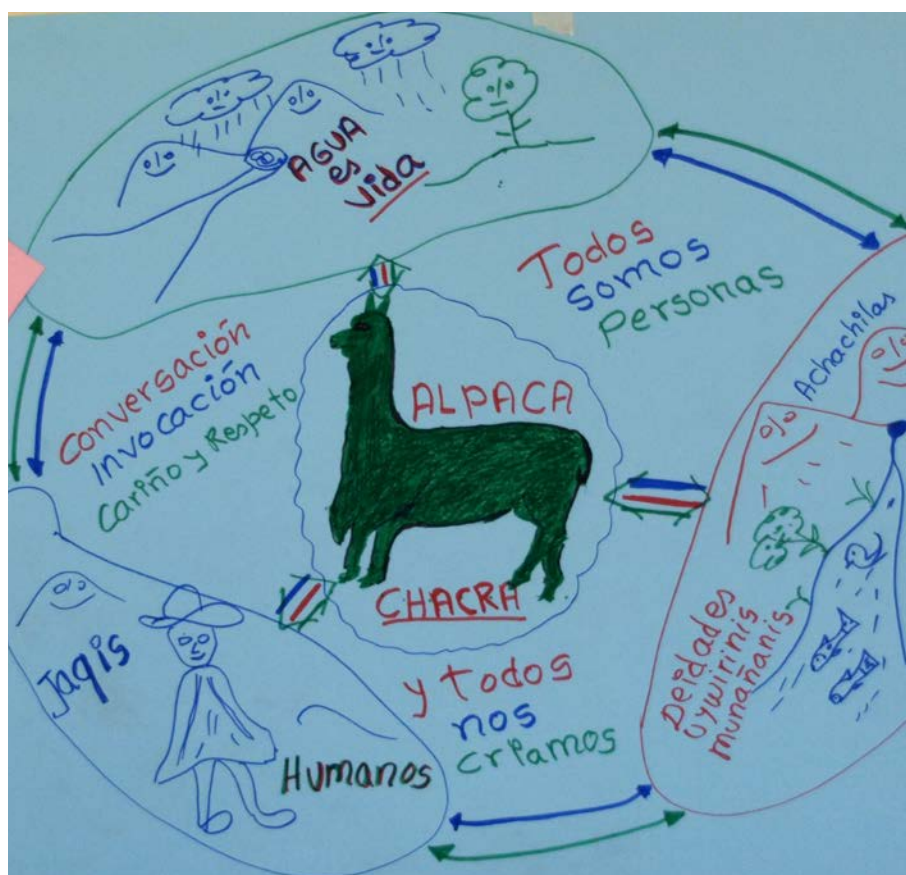 AGUA
es
vida
Todos
somos
personas
Conversación
Invocación
Cariño y Respeto
ALPACA
CHACRA
Achachilas
Deidades
Uywirinis
munañanis
Jaqis
Humanos
y todos
nos
criamos